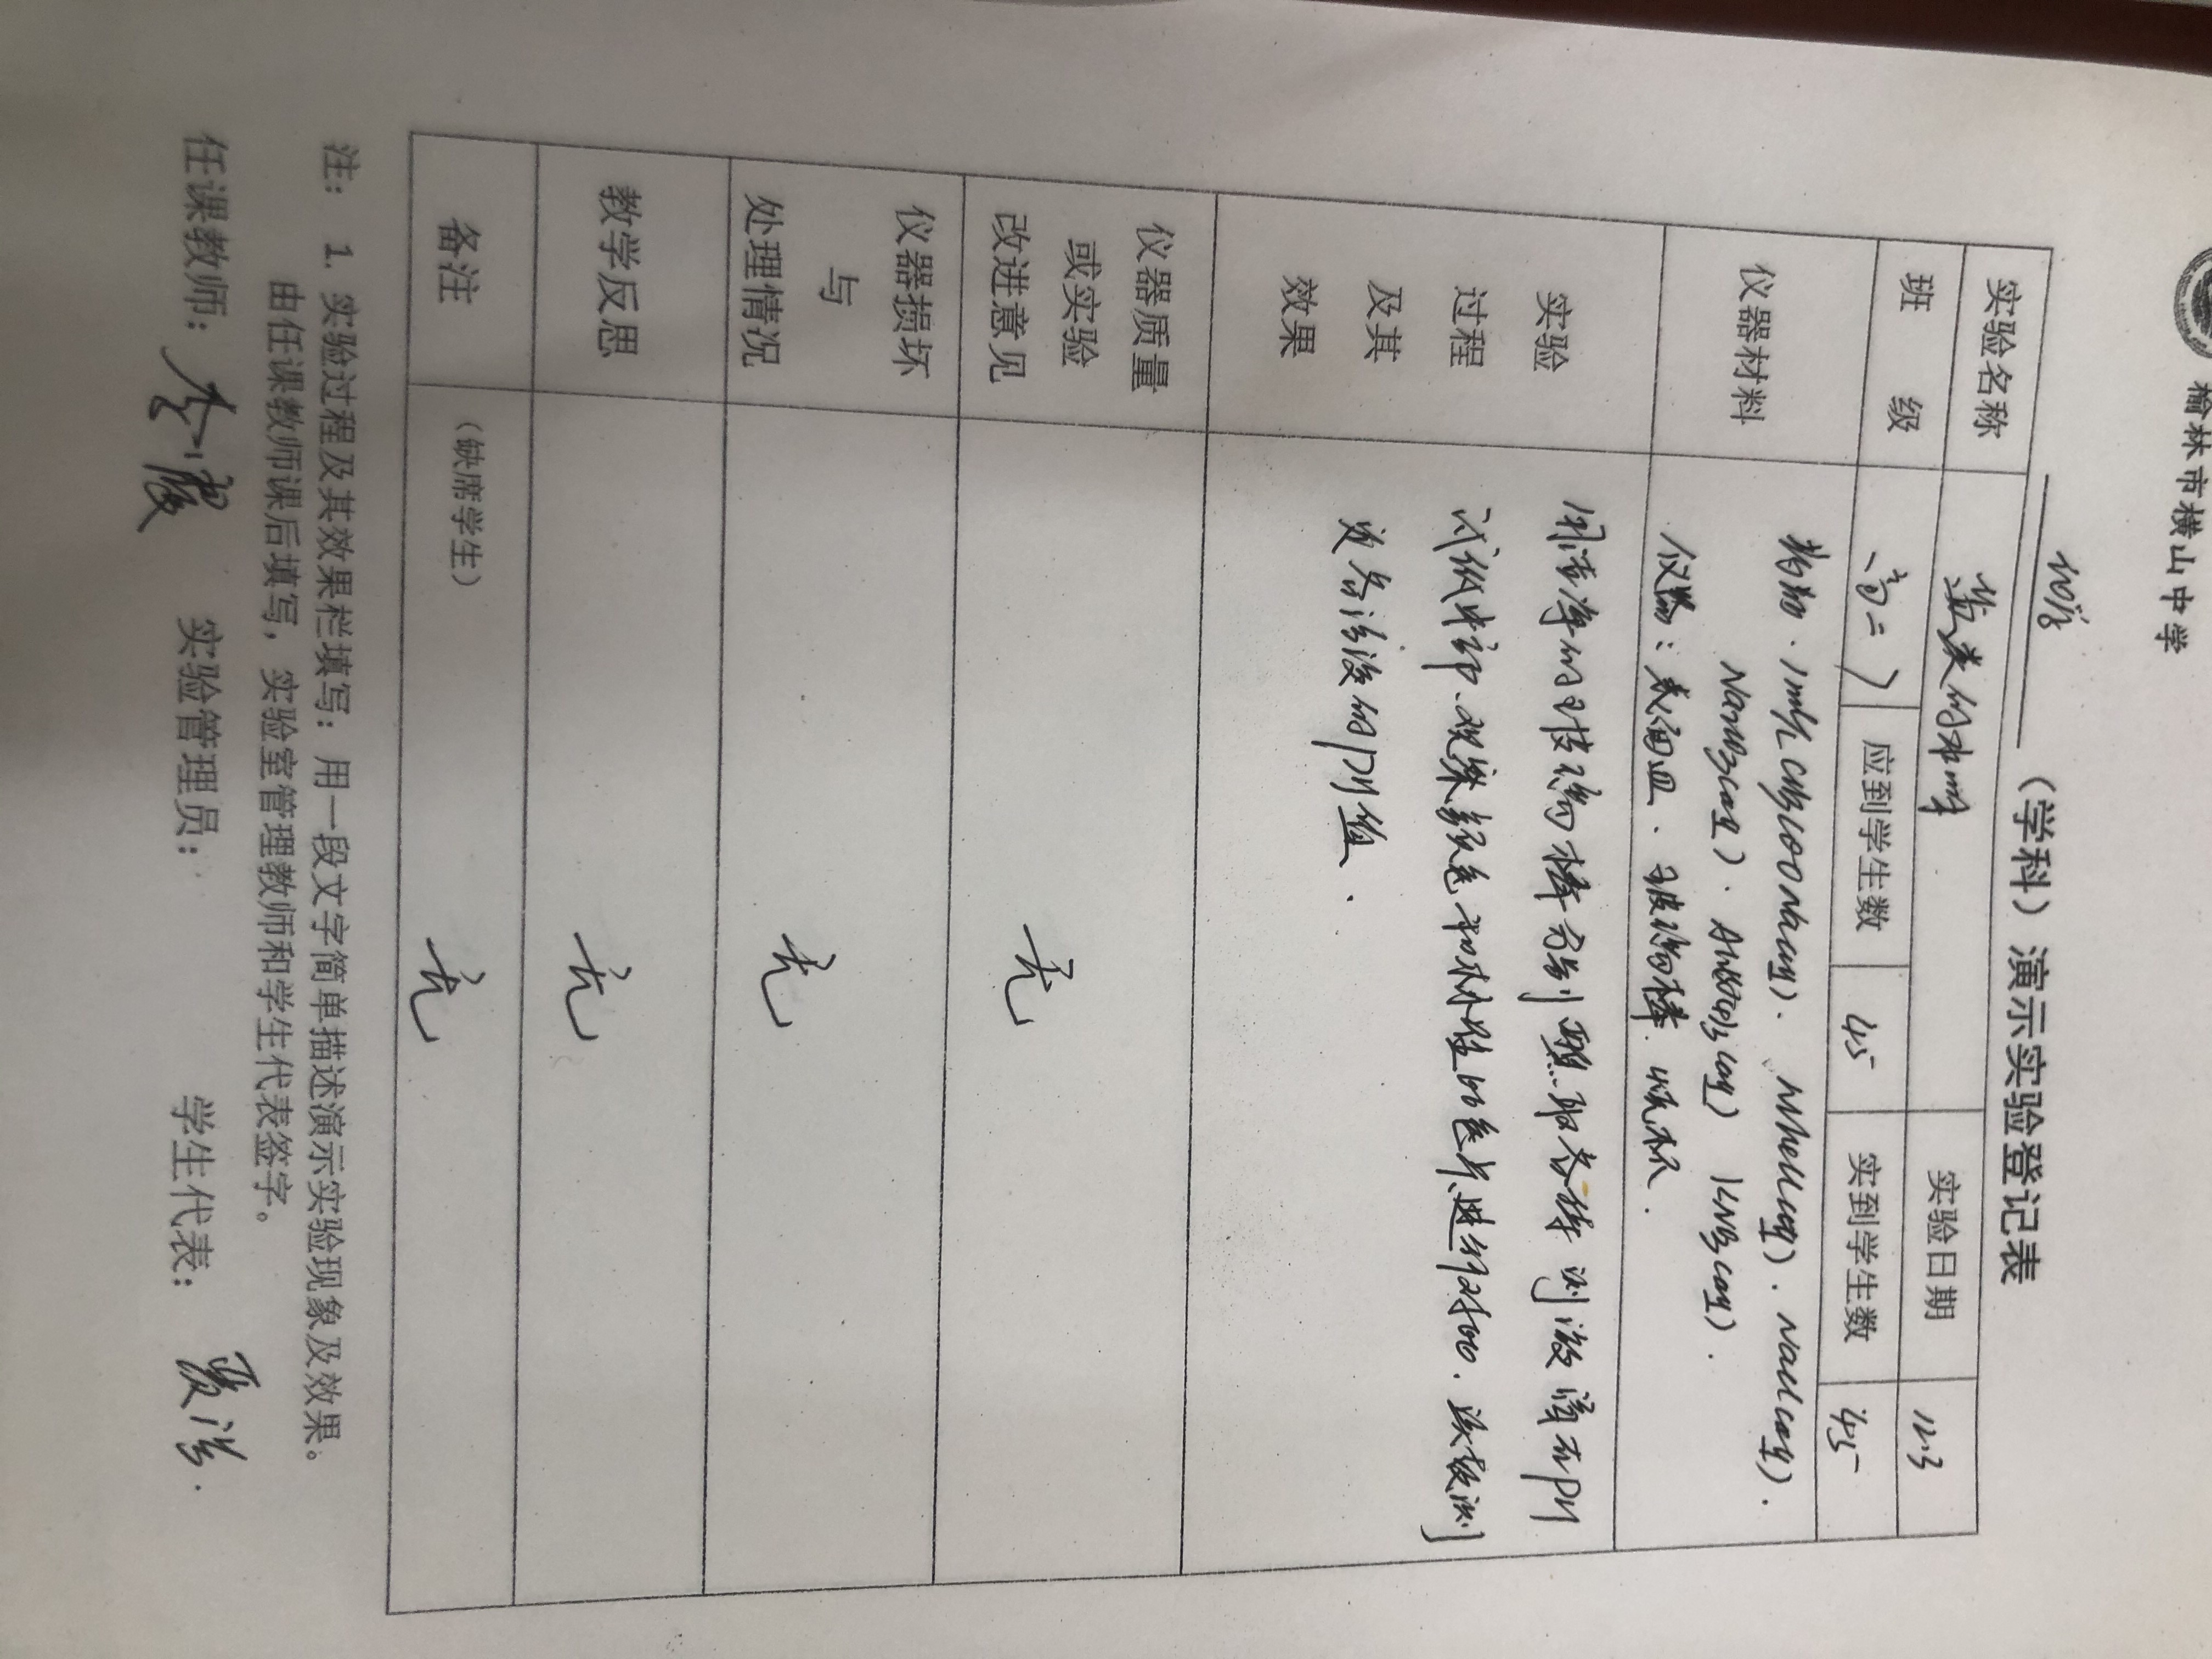 榆林市横山中学
化学 （学科）演示实验登记表
实验名称 盐类的水解 实验日期 12.3
班 级 高二 应到学生数 45 实到学生数 45
仪器材料 药物：1mol/L CH3COONa(aq)、NH4Cl(aq)、NaCl(aq)、
Na2CO3(aq)、Al2(SO4)3(aq) KNO3(aq)、
仪器：表面皿、玻璃棒、烧杯.
实验
过程
及其
效果
用洁净的玻璃棒分别蘸取各待测液滴在PH
试纸中部、观察颜色
为各溶液的PH值.
仪器质量
或实验
改进意见
无
仪器损坏
与
处理情况
无
教学反思 无
备注 （缺席学生） 无
注： 1. 实验过程及其效果栏填写：用一段文字简单描述演示实验现象及效果。
由任课教师课后填写，实验室管理教师和学生代表签字。
任课教师： 实验管理员： 学生代表：